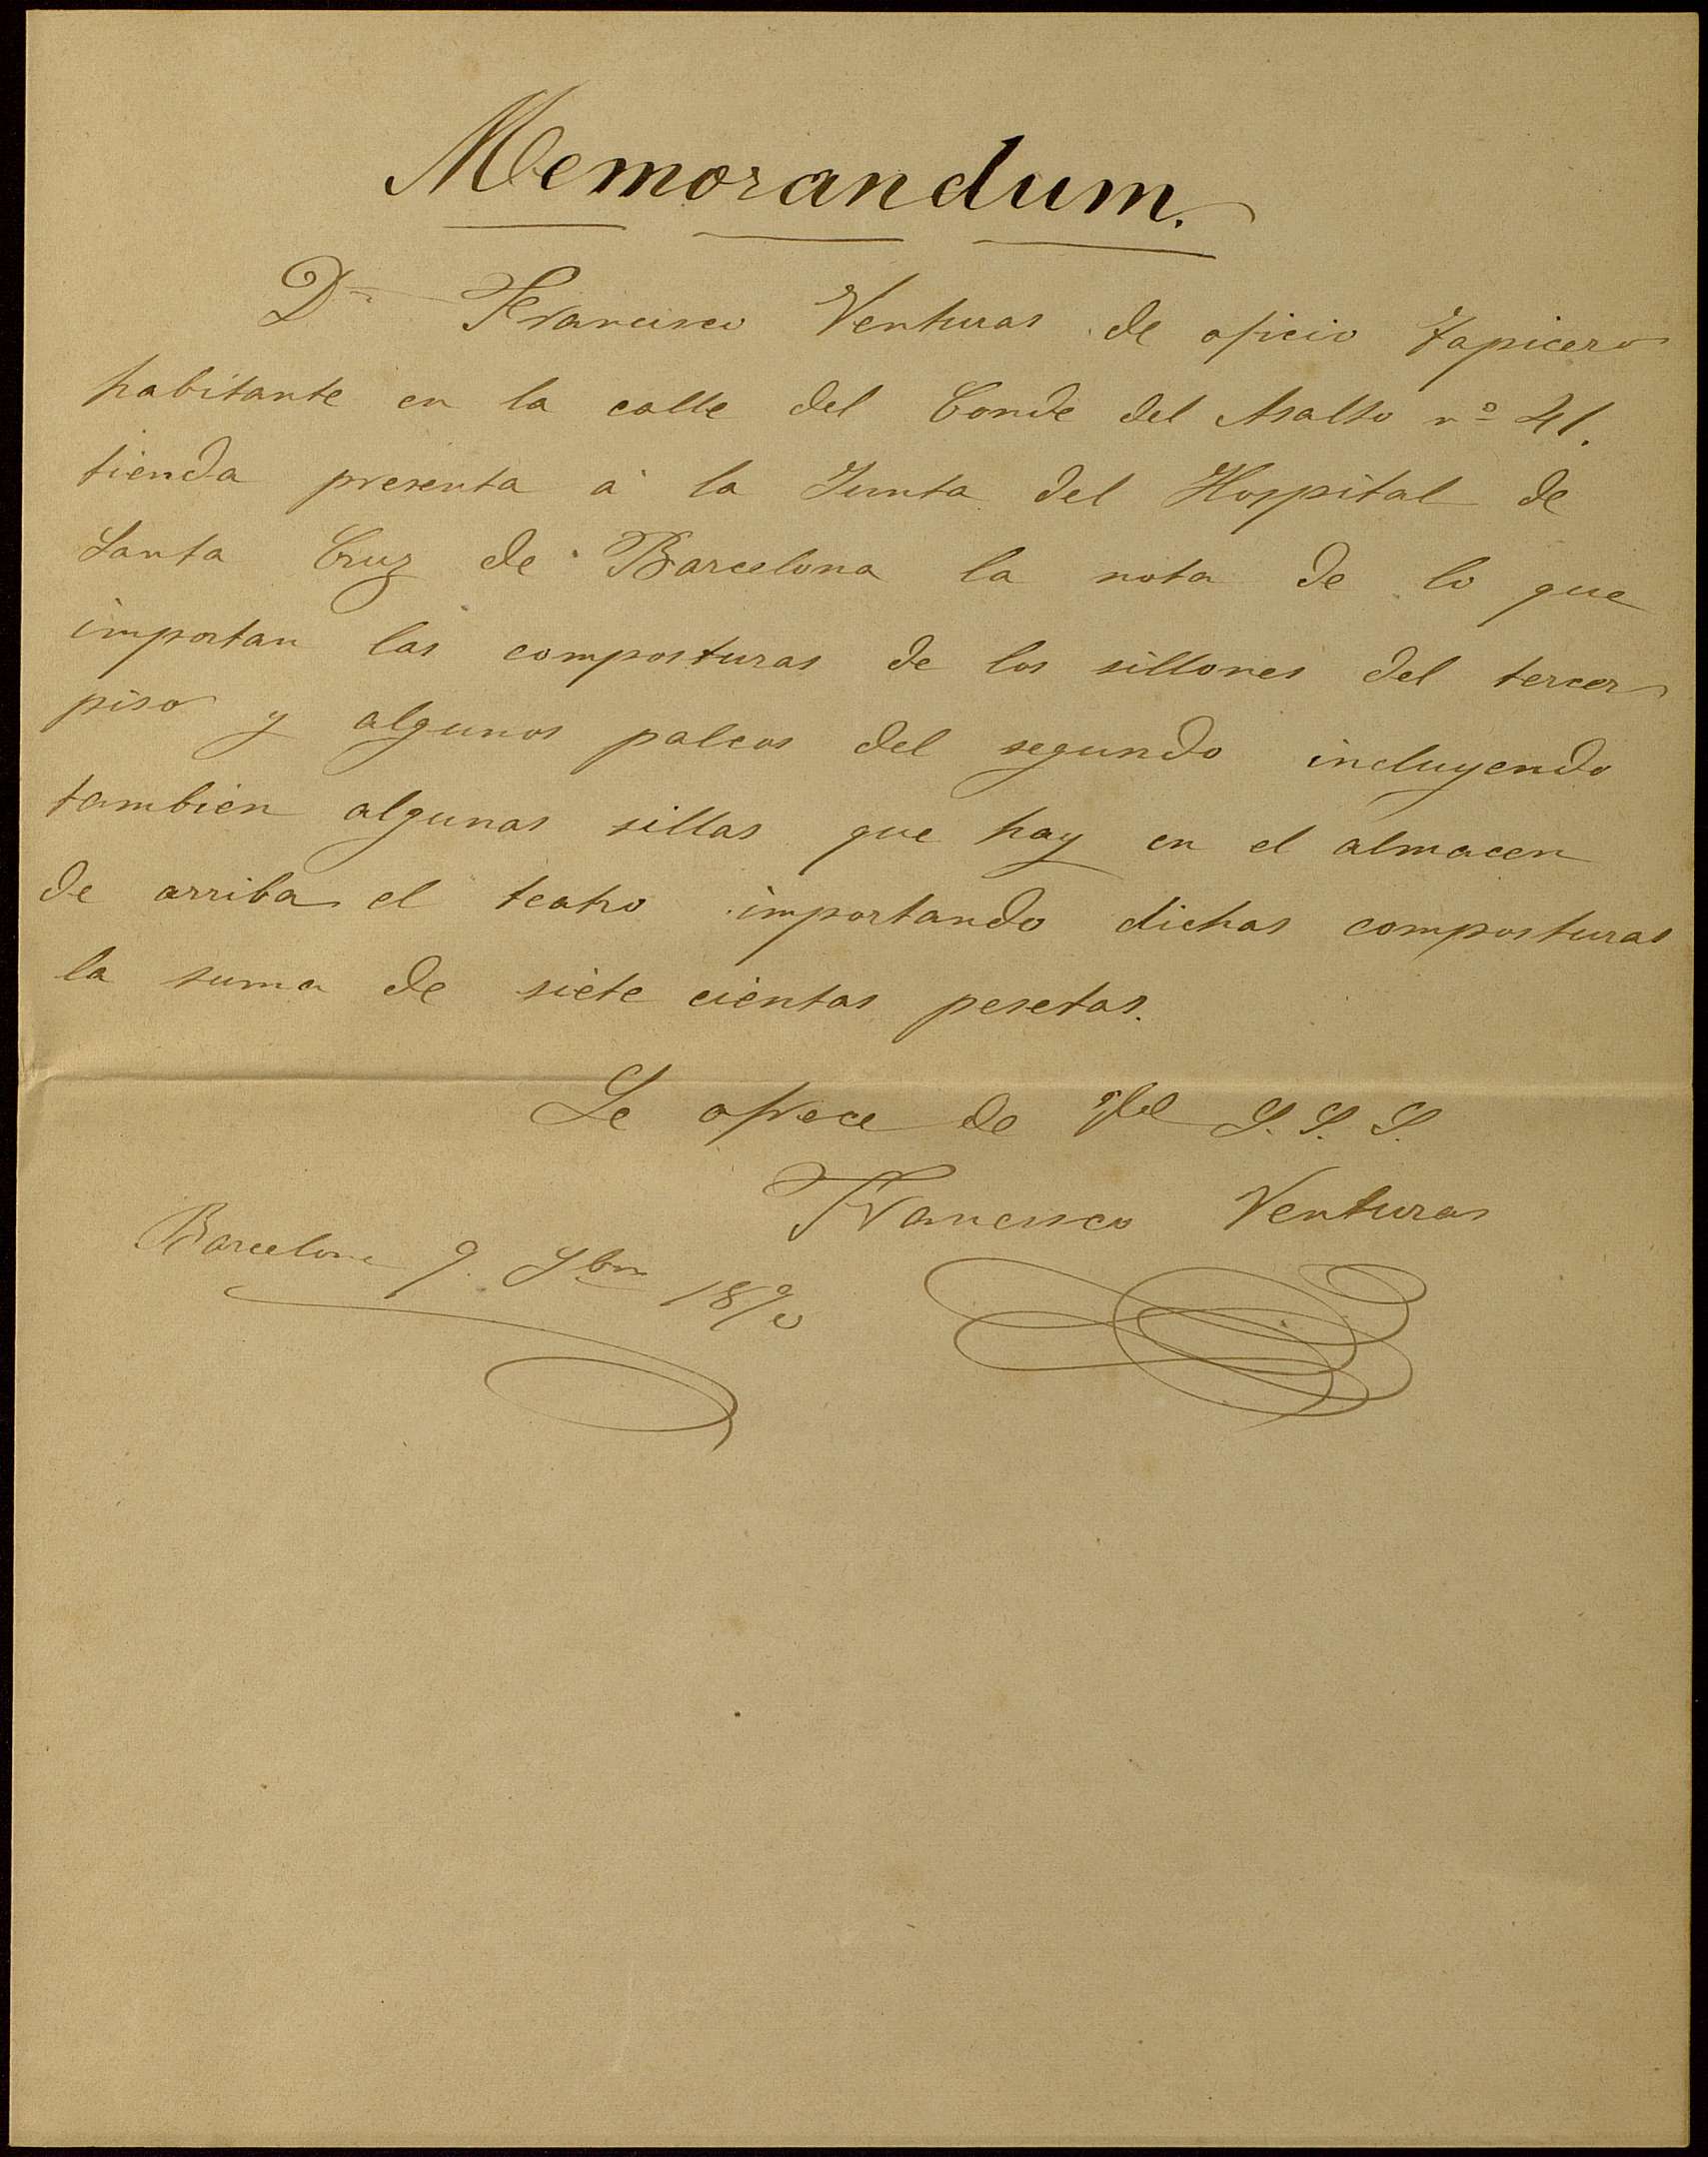 Memorandum.
Dn Francisco Venturas de oficio Tapicero
habitante en la calle del Conde del Asalto nº 41.
tienda presenta á la Junta del Hospital de
Santa Cruz de Barcelona la nota de lo que
importan las composturas de los sillones del tercer
piso y algunos palcos del segundo incluyendo
tambien algunas sillas que hay en el almacen
de arriba el teatro importando dichas composturas
la suma de siete cientas pesetas.
Se ofrece de S. S. S.
Francisco Venturas
Barcelona 9. 1890